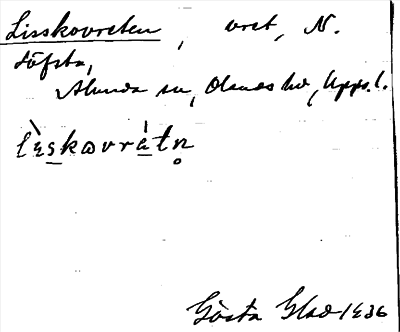 Lisskovreten, vret, N.
Söfsta,
Alunda sn, Olands hd, Upps. l.
lèskovrátn̥
Gösta Glad 1936